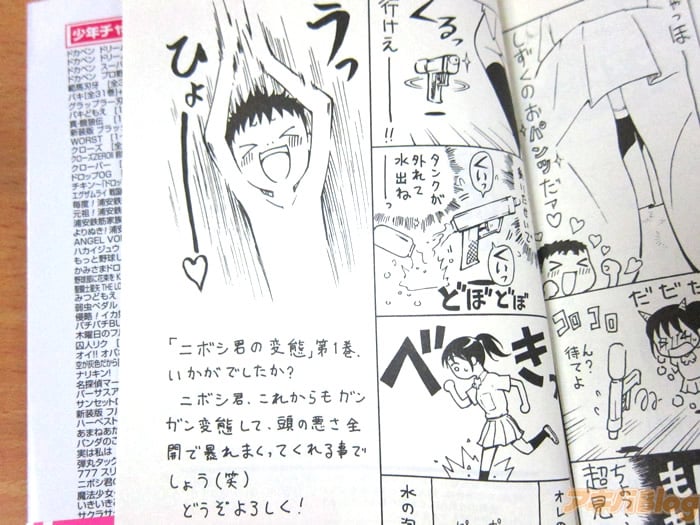 少年チャ
ドカベン ドリー
ドカベン ドリー
ドカベン スーパー
ドカベン プロ野
範馬刃牙
バキ[全31巻]
グラップラー刃
バキどもえ
真・餓狼伝
新装版 ブラッ
WORST
クローズ
クローズZEROⅡ
クローバー
ドロップOG
チキン
エグザムライ 戦国
毎度!浦安鉄
元祖!浦安鉄
浦安鉄筋家族
よりぬき!浦安
ANGEL VO
ハカイジュウ
もっと野球し
かみさまドロ
野球部に花束を
聖闘士星矢 THE LO
みつどもえ
弱虫ペダル
侵略!イカ
バチバチBU
木曜日のフ
囚人リク
オイ!!オバ
空が灰色だから
ナリキン!
名探偵マー
バーサスア
サンセットロ
新装版
ハーベスト
あまねあた
パンダのこ
実は私は
弾丸タック
777 スリ
ニボシ君の
魔法少女
いきいき
サクラサ
うっ
ひょーー♡
「ニボシ君の変態」第1巻、
いかがでしたか?
ニボシ君、これからもガン
ガン変態して、頭の悪さ全
開で暴れまくってくれる事で
しょう(笑)
どうぞよろしく!
やっほー
しずくのおパンツだァ♡
くるっ
行けえーー!!
くいっ
タンクが
外れて
水出ね
くいっ
どぼどぼ
だだだ
コロコロ
ん?
待てよ
べき
ち
超見
も
オレの
水の
アキバBlog